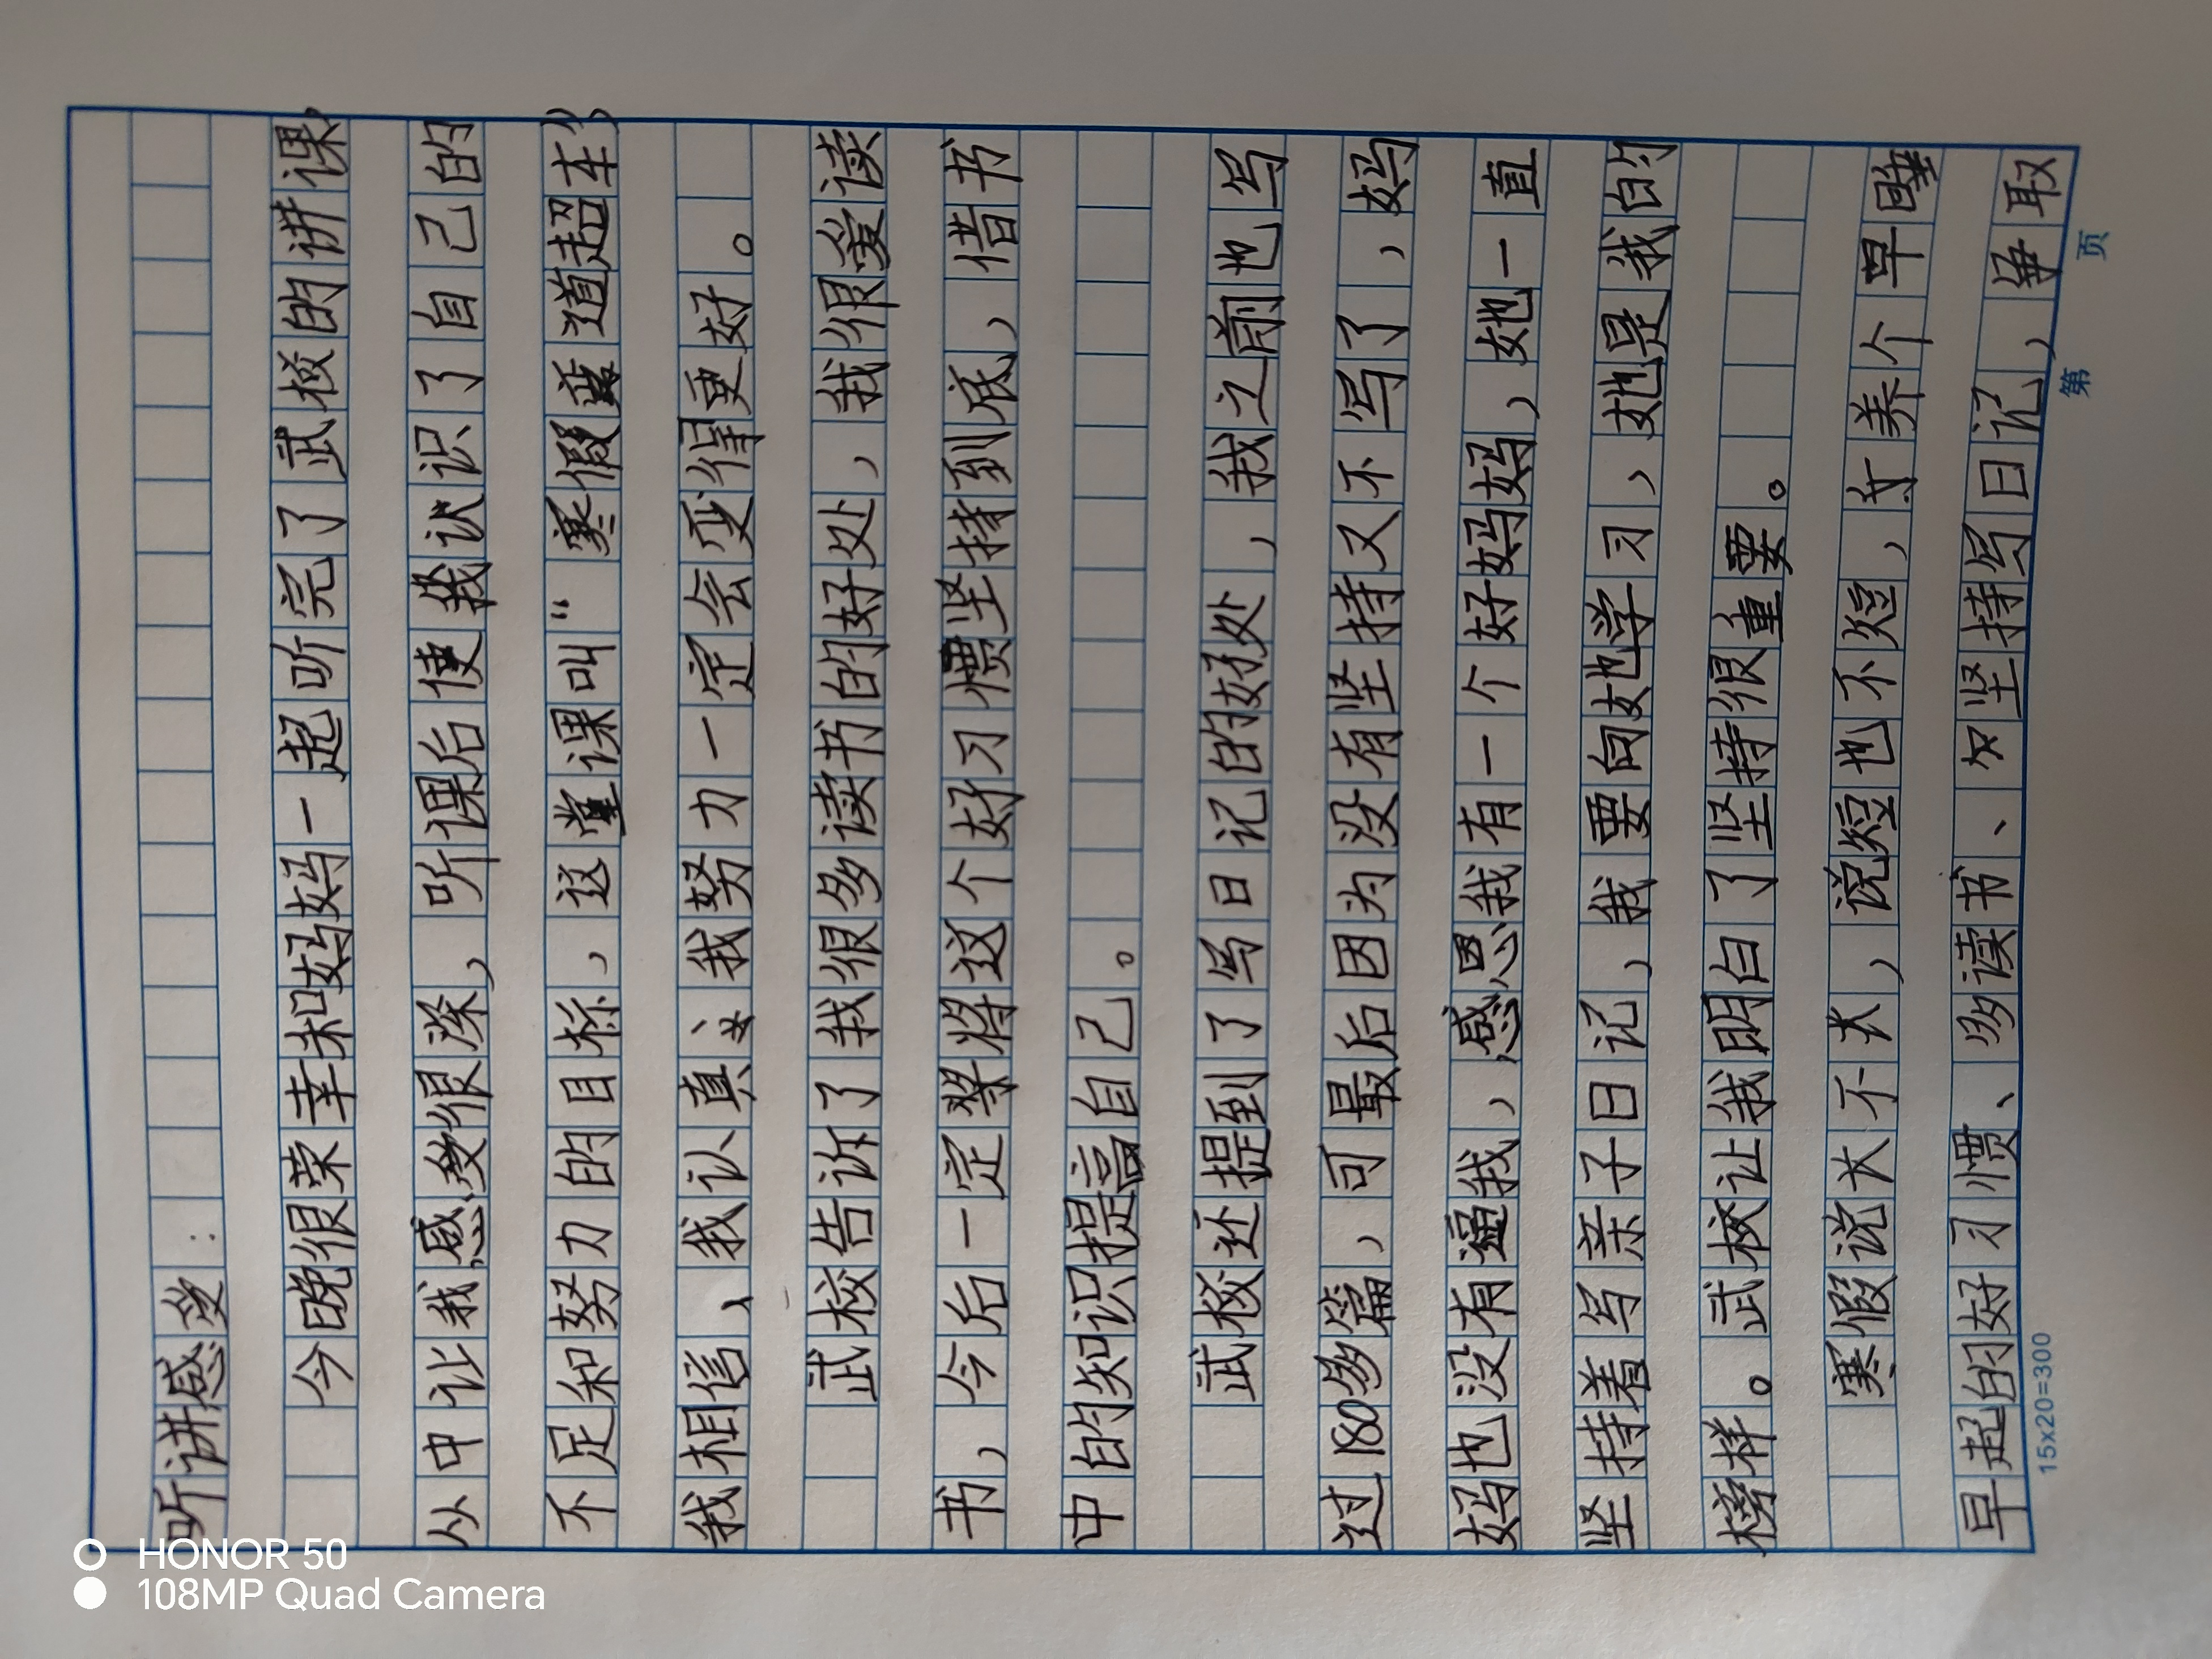 听讲感受：
今晚很荣幸和妈妈一起听完了武校的讲课，
从中让我感受很深，听课后使我认识了自己的
不足和努力的目标，这堂课叫“寒假弯道超车”
我相信、我认真、我努力一定会变得更好。
武校告诉了我很多读书的好处，我很爱读
书，今后一定将这个好习惯坚持到底，借书
中的知识提高自己。
武校还提到了写日记的好处，我之前也写
过180多篇，可最后因为没有坚持又不写了，妈
妈也没有逼我，感恩我有一个好妈妈，她一直
坚持着写亲子日记，我要向她学习，她是我的
榜样。武校让我明白了坚持很重要。
寒假说长不长，说短也不短，养个早睡
早起的好习惯、多读书、坚持写日记，争取
15x20=300
第 页
HONOR 50
108MP Quad Camera